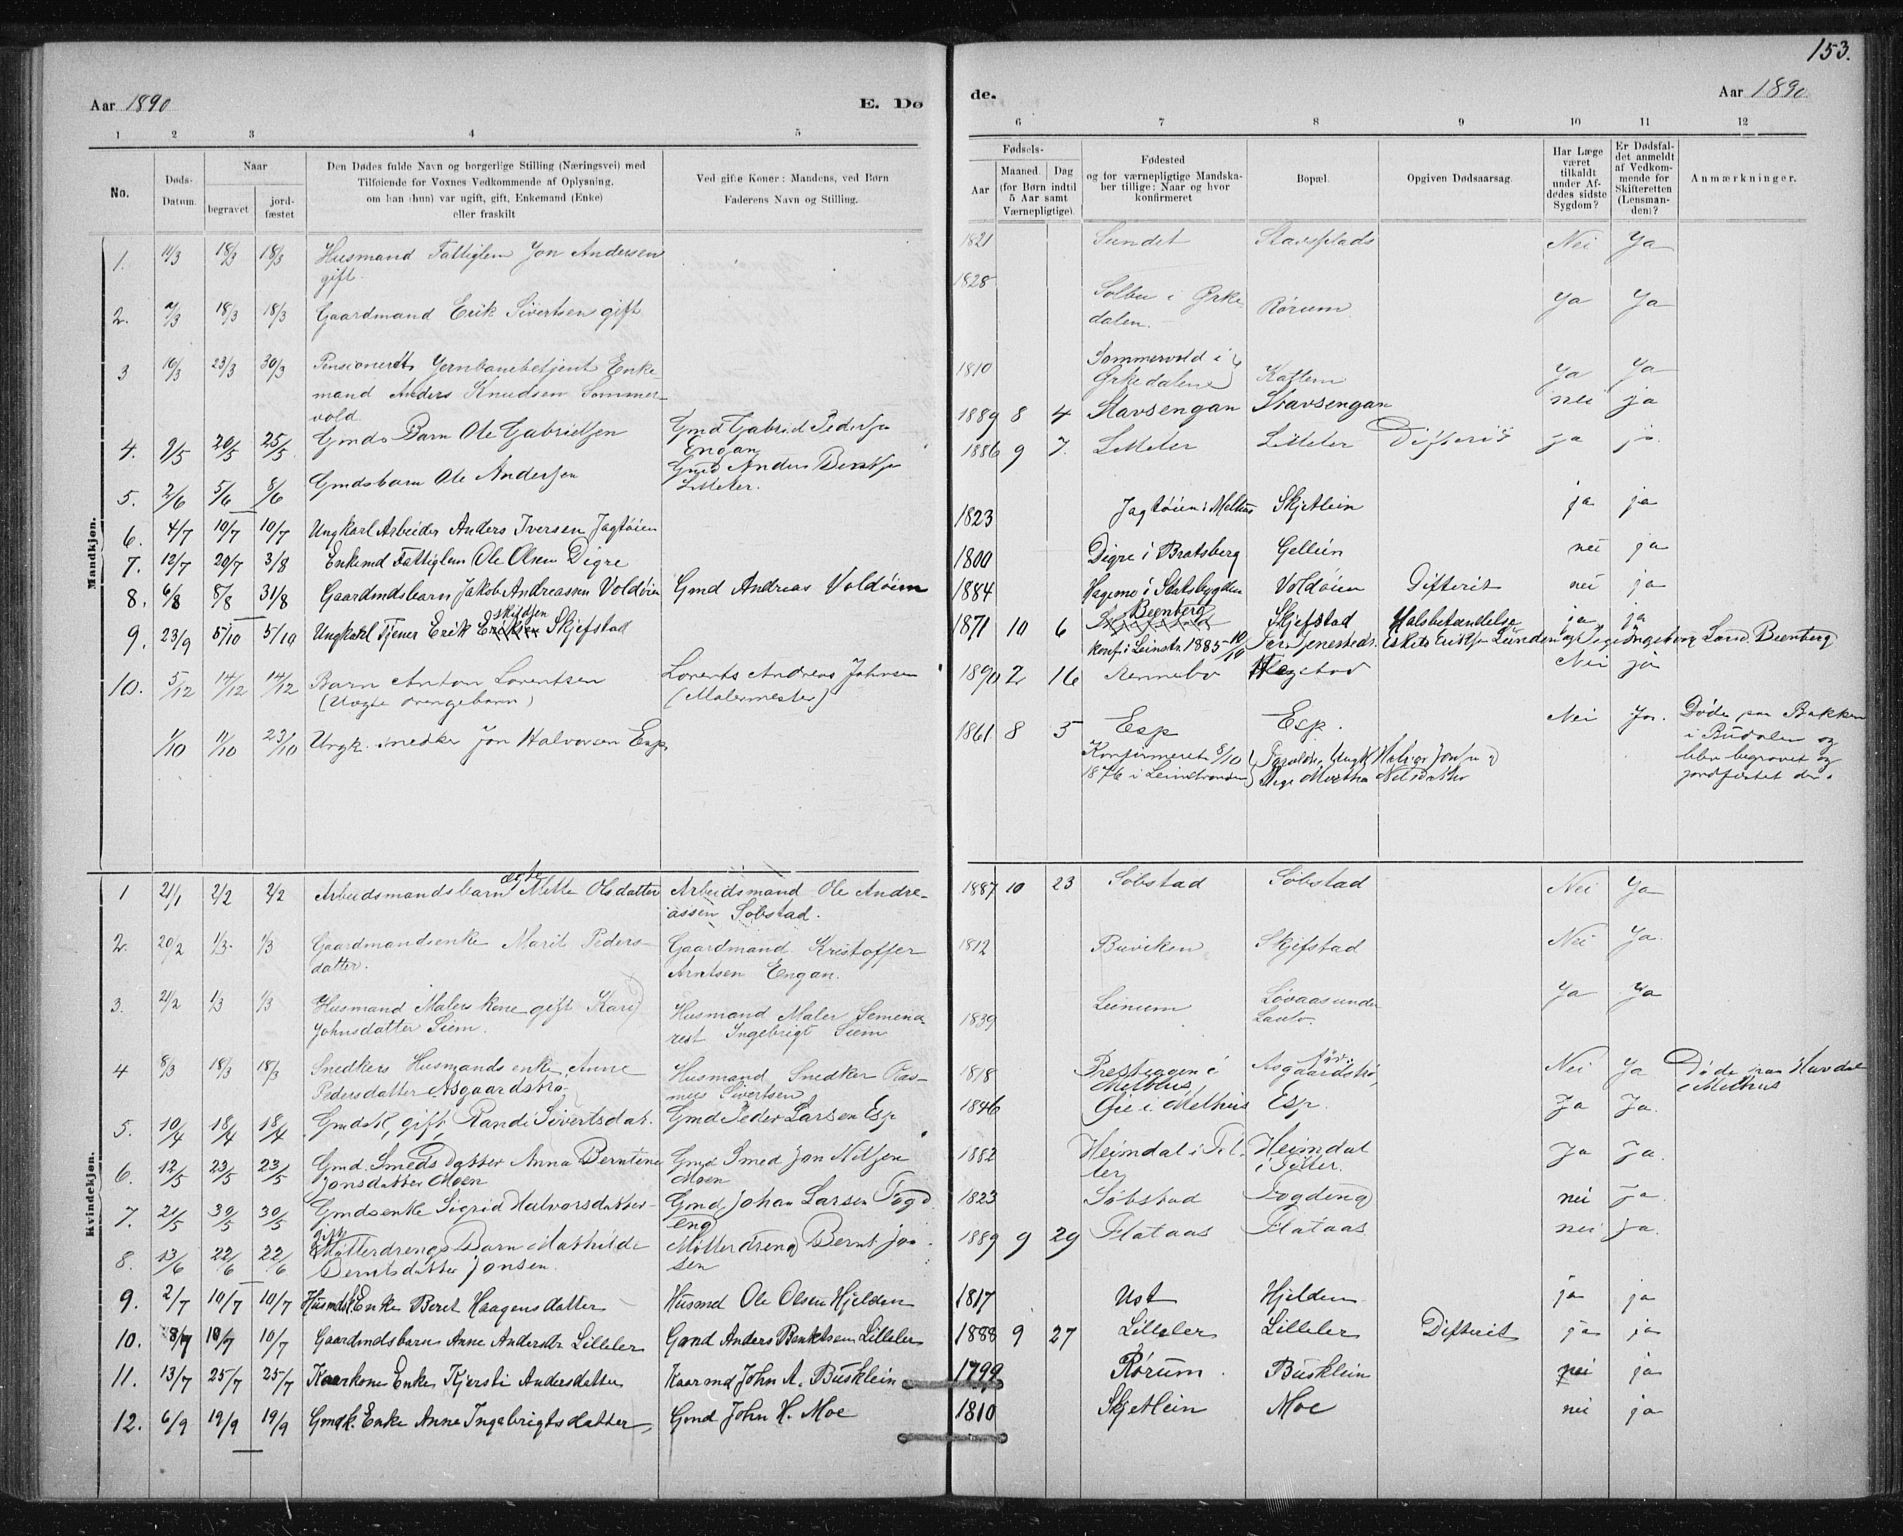 153.
Aar 1890 E. Dø de. Aar 1890
1 2 3 4 5 6 7 8 9 10 11 12
No. Døds-Datum. Naar begravet jord-fæstet Den Dødes fulde Navn og borgerlige Stilling (Næringsvei) med Tilføiende for Voxnes Vedkommende af Oplysning, om han (hun) var ugift, gift, Enkemand (Enke) eller fraskilt Ved gifte Koner: Mandens, ved Børn Faderens Navn og Stilling. Fødsels- Aar Maaned. Dag (for Børn indtil 5 Aar samt Værnepligtige). Fødested og for værnepligtige Mandska-ber tillige: Naar og hvor konfirmeret Bopæl. Opgiven Dødsaarsag. Har Læge været tilkaldt under Af-dødes sidste Sygdom? Er Dødsfal-det anmeldt af Vedkom-mende for Skifteretten (Lensman-den)? Anmærkninger.
Mandkjøn.
1. 11/3 18/3 18/3 Husmand Fattiglem Jon Andersen gift. 1821 Sundet Stavsplads Nei Ja
2. 7/3 18/3 18/3 Gaardmand Erik Sivertsen gift 1828 Solbu i Ørkedalen. Rørum Ja Ja
3 10/3 23/3 30/3 Pensioneret Jernbanebetjent Enkemand Anders Knudsen Sommervold 1810 Sommervold i Ørkedalen Kattem Ja Ja
4. 9/5 20/5 25/5 Gmds Barn Ole Gabrielsen Gmd Gabriel Pedersen Engan 1889 8 4 Stavsengan Stavsengan nei ja
5. 2/6 5/6 8/6 Gmdsbarn Ole Andersen Gmd Anders Bentsen Litleler. 1886 9 7. Litleler Litleler Difterit ja ja.
6. 4/7 10/7 10/7 Ungkarl Arbeider Anders Iversen Jagtøien 1823 Jagtøien i Melhus Skjetlein ja ja
7. 12/7 20/7 3/8 Enkemd Fattiglem Ole Olsen Digre 1800 Digre i Bratsberg Gellein nei ja
8. 6/8 8/8 31/8 Gaardmdsbarn Jakob Andreassen Voldøien Gmd Andreas Voldøien 1884 Hagemo i Statsbygden Voldøien Difterit nei ja
9. 23/9 5/10 5/10 Ungkarl Tjener Erik Eskildsen Skjefstad 1871 10 6 Bienberg Skjefstad Halsbetændelse ja ja
konf i Leinstr. 1885 10/10 Eskild Eriksen Lunden og Pige Ingeborg Bienberg
10. 5/12 14/12 14/12 Barn Anton Lorentsen (Uægte drengebarn) Lorents Andreas Johnsen (Malermester) 1890 2 16 Rennebo Hegstad Nei ja
1/10 11/10 23/10 Ungk. snedker Jon Halvorsen Esp. 1861 8 5 Esp Esp. Nei Ja. Døde paa Bakken i Budalen og blev begravet og jordfæstet der.
Konfirmeret 8/10 1876 i Leinstranden Forældre, Ungk Halvor Jonsen og Pige Martha Nilsdatter
Kvindekjøn.
1 21/1 2/2 2/2 Arbeidsmandsbarn ægte Mette Olsdatter Arbeidsmand Ole Andreassen Søbstad. 1887 10 23 Søbstad Søbstad Nei Ja
2. 20/2 1/3 1/3 Gaardmandsenke Marit Pedersdatter. Gaardmand Kristoffer Arntsen Engan. 1812 Buviken Skjefstad Nei Ja.
3. 21/2 1/3 1/3 Husmand Malers kone gift Kari Johnsdatter Siem. Husmand Maler Semenarest Ingebrigt Siem 1839 Leinum Løvaas under Lauto. Ja Ja
4 8/3 18/3 18/3 Snedkers Husmands enke Anne Pedersdatter Asgaardstrø Husmand Snedker Rasmus Sivertsen 1818 Presteggen i Melhus Asgaardstrø, Nei Ja Døde paa Havdal i Melhus
5. 10/4 18/4 18/4 GmdsK, gift, Randi Sivertsdat. Gmd Peder Larsen Esp 1846 Øie i Melhus Esp. Ja Ja.
6. 12/5 23/5 23/5 Gmd. Smeds Datter Anna Berntine Jonsdatter Moen Gmd Smed Jon Nilsen Moen 1882 Heimdal i Tiller Heimdal i Tiller. Ja Ja.
7. 21/5 30/5 30/5 Gmdsenke Sigrid Halvorsdatter Gmd. Johan Larsen Fogdeng 1823 Søbstad Fogdeng nei ja.
8. 13/6 22/6 22/6 Møllerdrengs Barn Mathilde Berntsdatter Jonsen. Møllerdreng Bernt Jonsen 1889 9 29 Flataas Flataas nei ja.
9. 2/7 10/7 10/7 Husmds Enke Beret Haagensdatter Husmd Ole Olsen Hjelden 1817 Ust Hjelden ja ja
10. 8/7 10/7 10/7 Gaardmdsbarn Anne Andersdr Lilleler Gmd Anders Bentsen Lilleler 1888 9 27 Lilleler Lilleler Difterit ja ja
11. 13/7 25/7 25/7 Kaarkone Enke Kjersti Andersdatter Kaarmd John A. Busklein 1799 Rørum. Busklein nei ja
12. 6/9 19/9 19/9 Gmdk. Enke Anne Ingebrigtsdatter, Gmd John H. Moe 1810 Skjetlein Moe nei ja